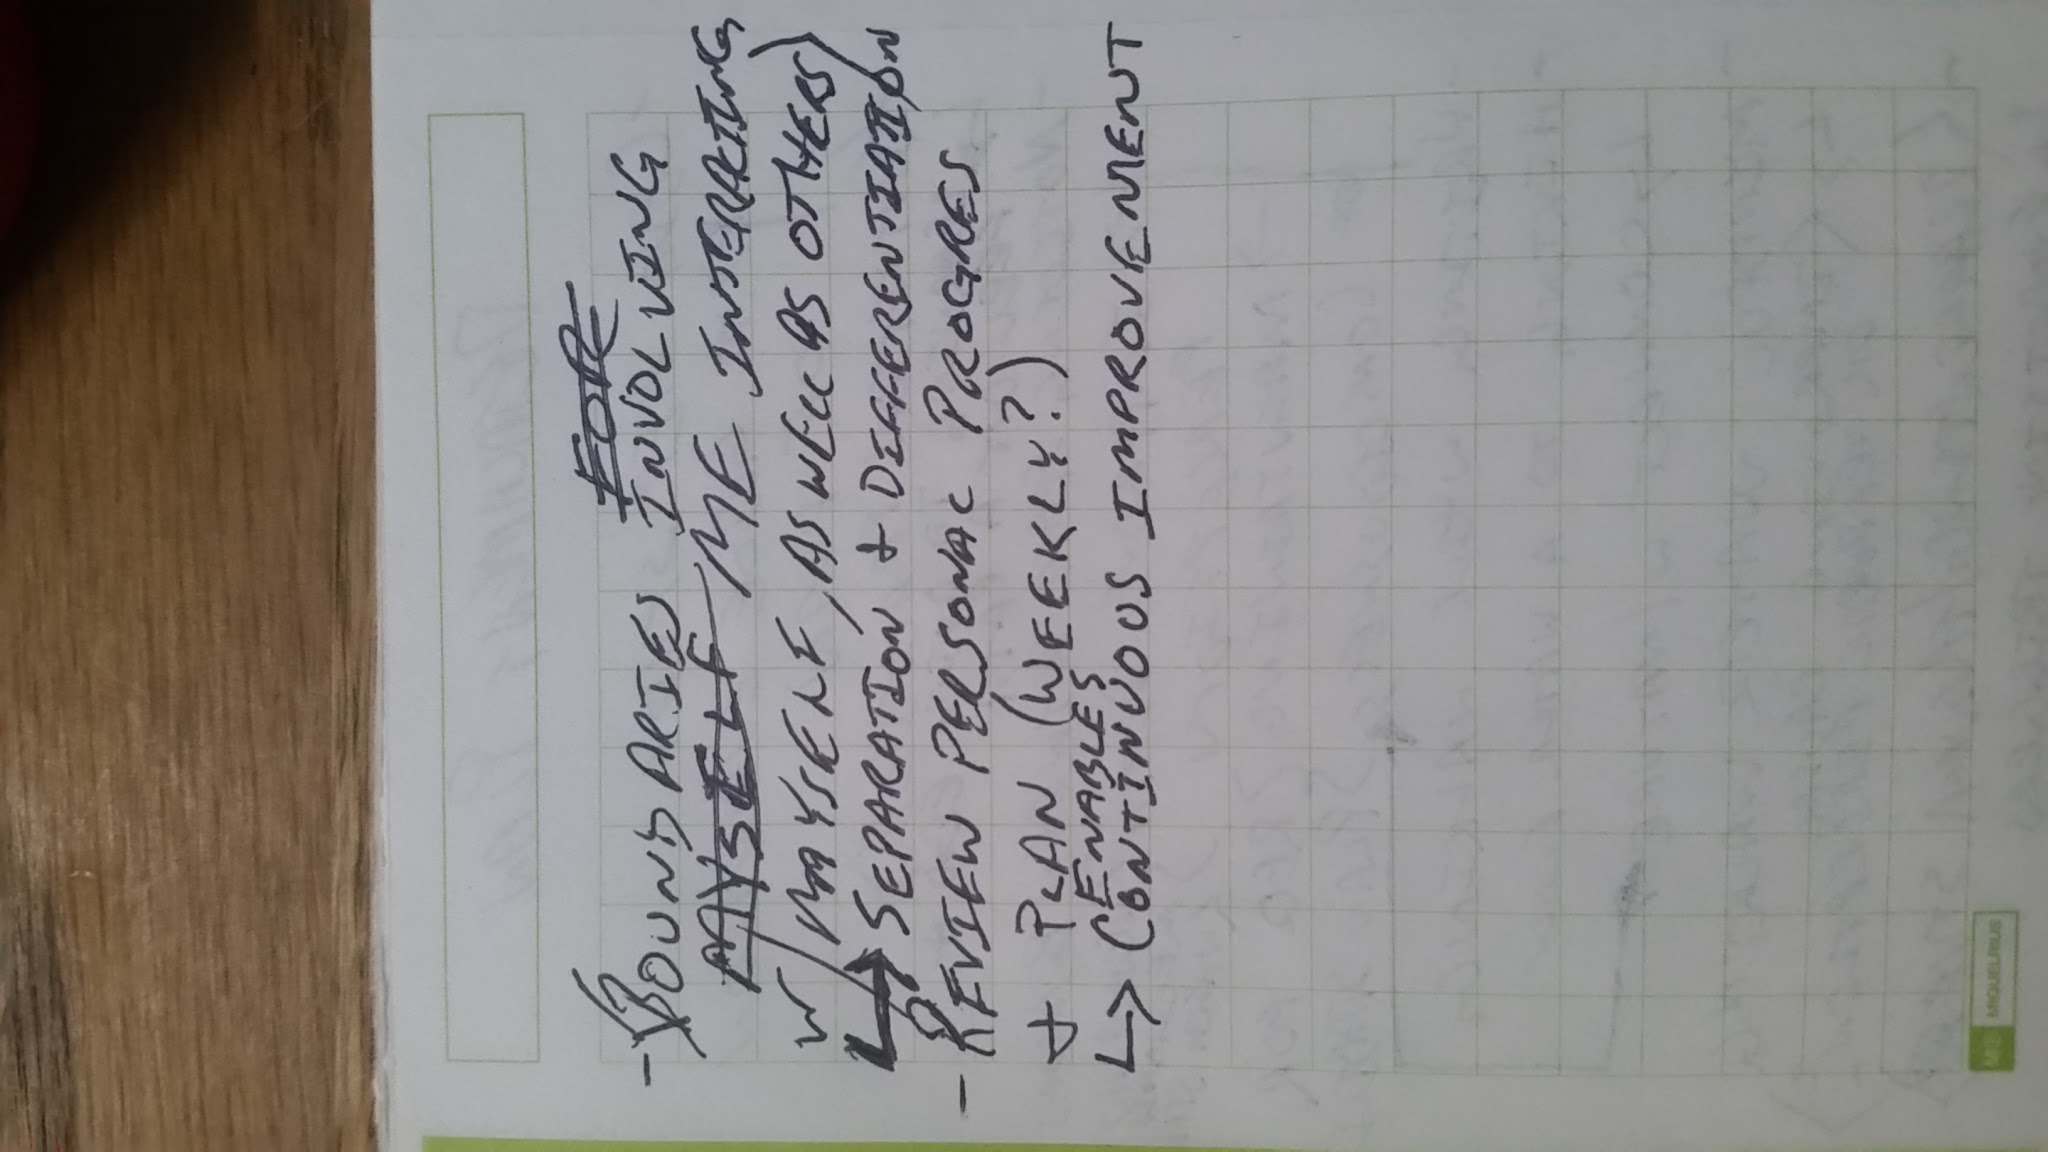 FOR
- BOUNDARIES INVOLVING
MYSELF ME INTERACTING
W/ MYSELF, AS WELL AS OTHERS)
↳ SEPARATION + DIFFERENTIATION
- REVIEW PERSONAL PROGRES
+ PLAN (WEEKLY?)
ENABLES
↳ CONTINUOUS IMPROVEMENT
MIQUELRIUS